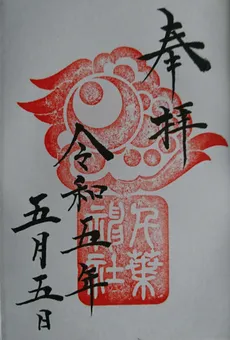 奉拝
令和五年
五月五日